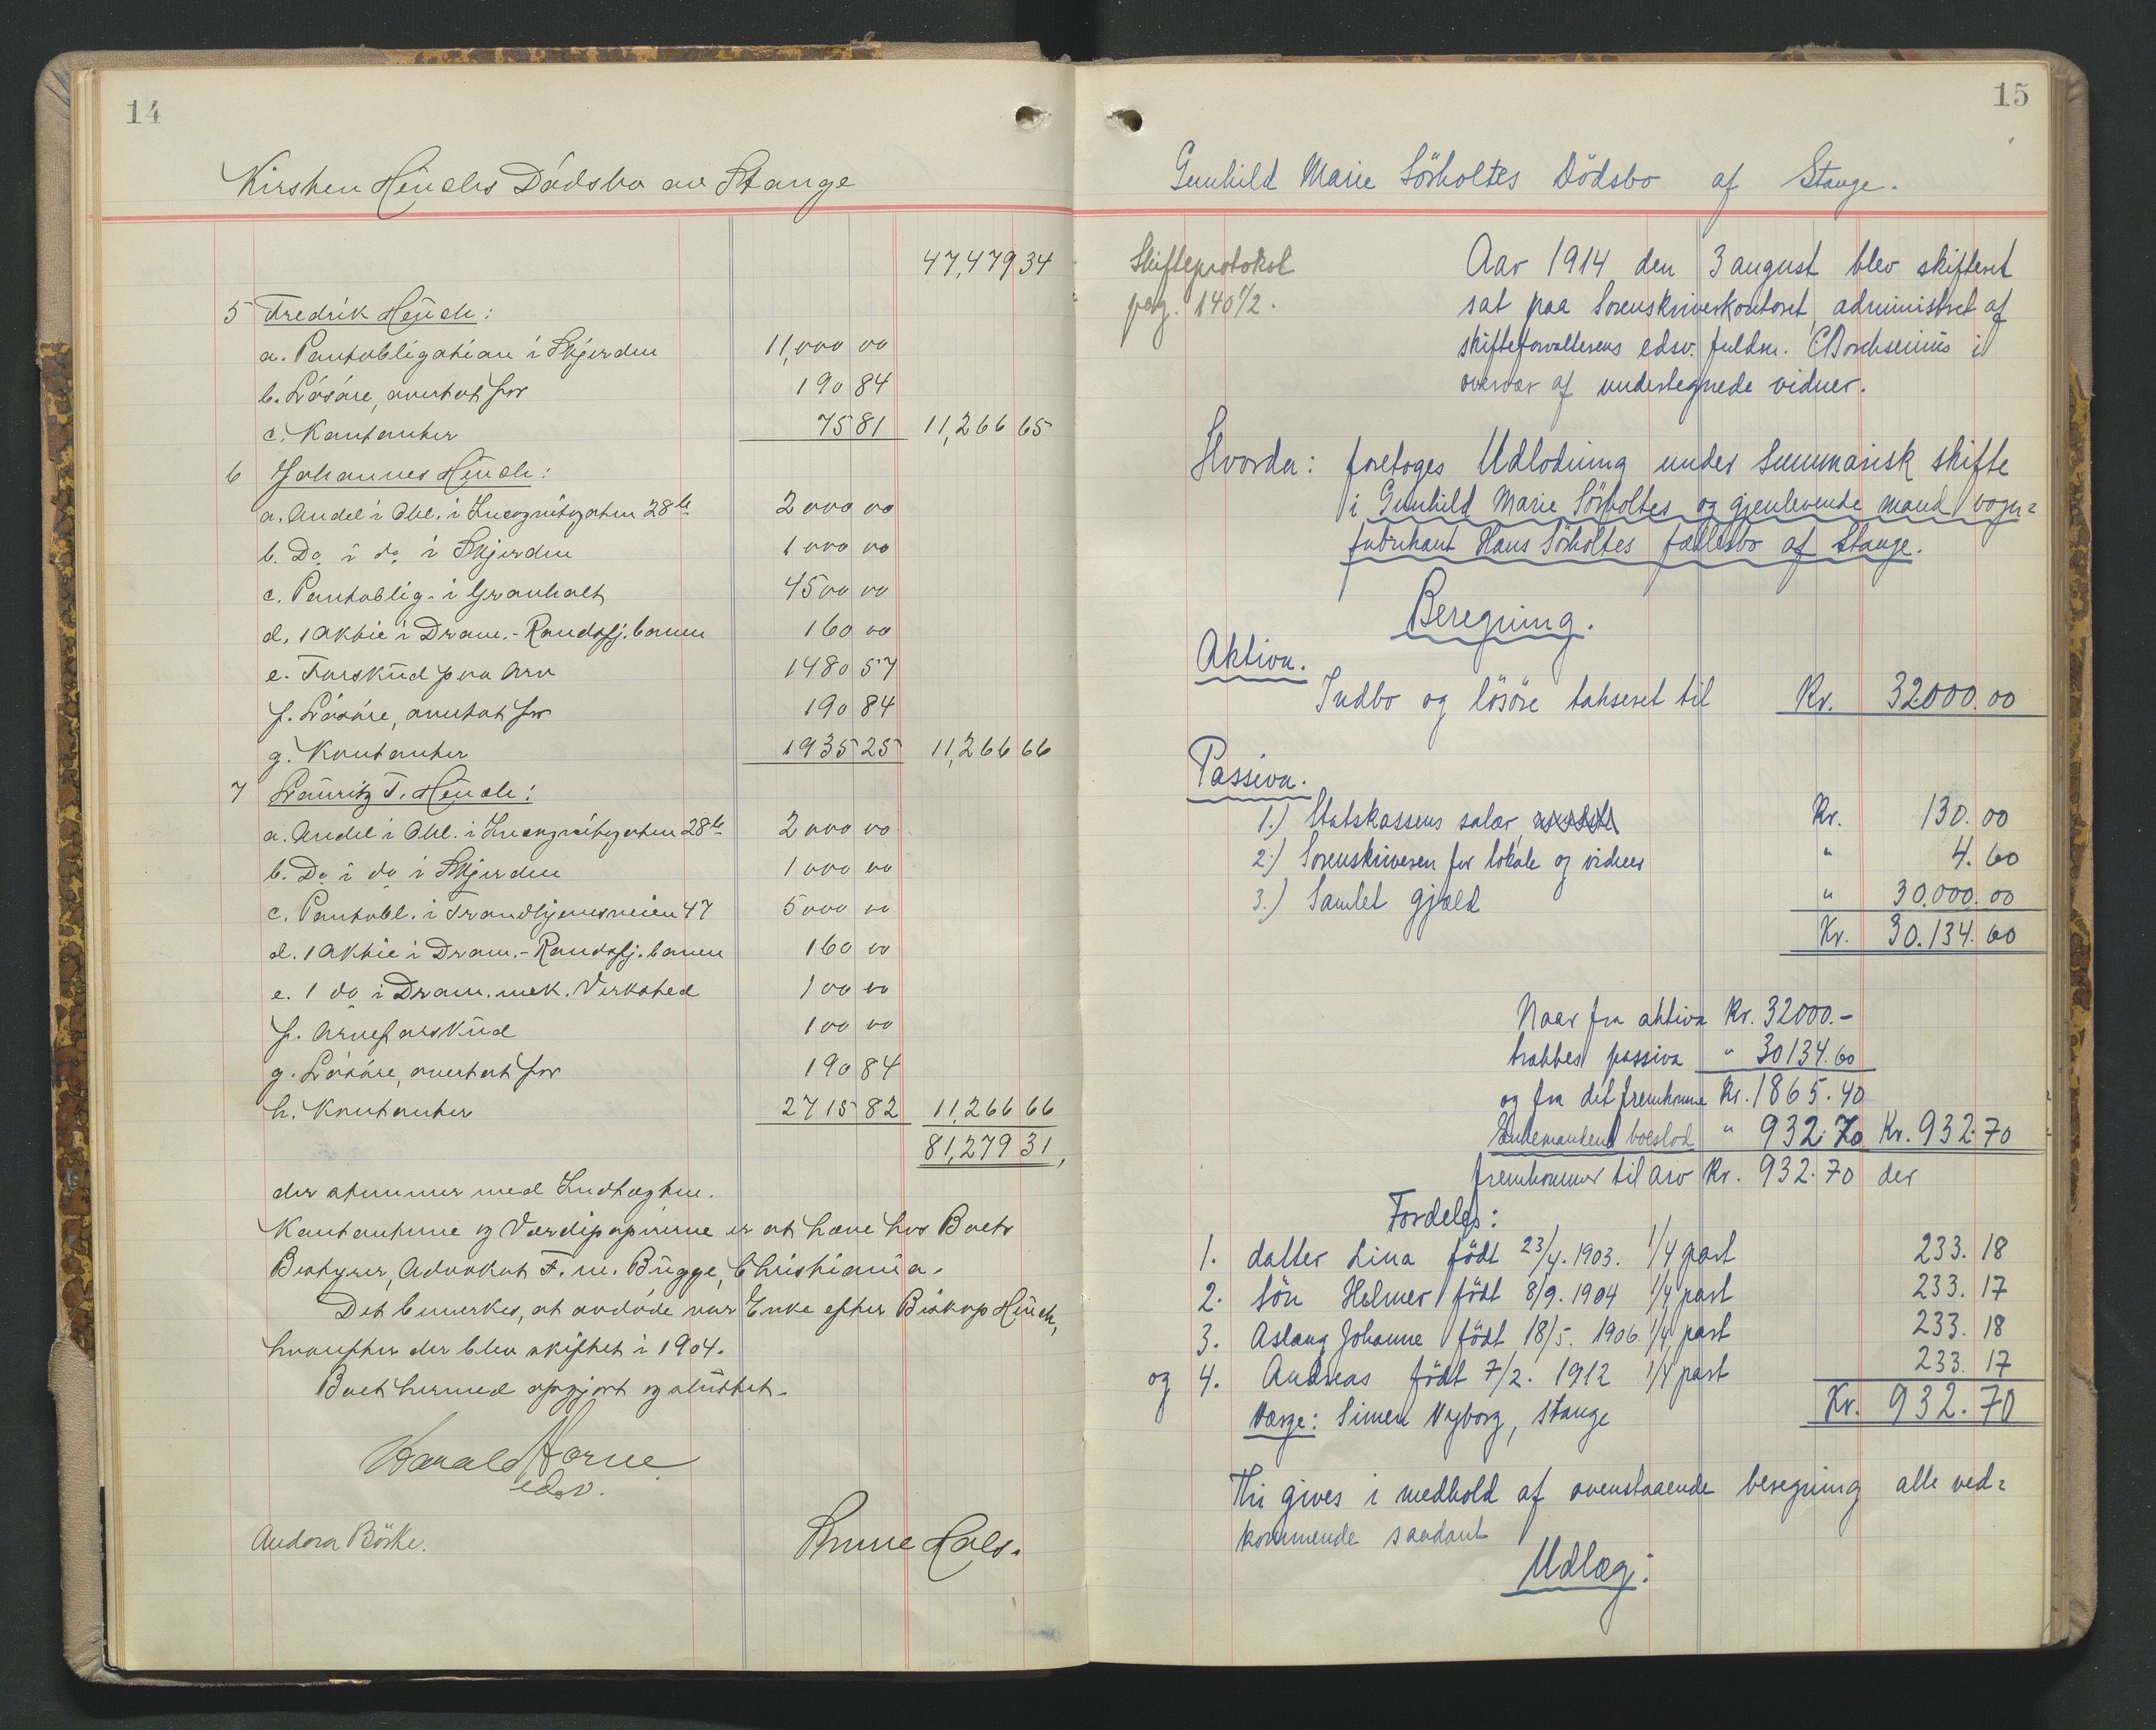 14
Kirsten Heuchs Dödsbo av Stange
47,479 34
5 Fredrik Heuch:
a. Pantobligation i Skjerden 11,000 00
b. Lösöre, overtat for 190 84
c. Kontanter 75 81 11,266 65
6 Johannes Heuch:
a. Andel i Obl. i Incognitogaten 28 b 2000 00
b. Do i do i Skjerden 1000 00
c. Pantoblig. i Granholt 4500 00
d. 1 Aktie i Dram.-Randsfj.banen 160 00
e. Forskud paa Arv 1480 57
f. Lösöre, overtat for 190 84
g. Kontanter 1935 25 11,266 66
7 Lauritz F. Heuch:
a. Andel i Obl. i Incognitogaten 28 b 2000 00
b. Do i do i Skjerden 1000 00
c. Pantobl. i Trondhjemsveien 47 5000 00
d. 1 Aktie i Dram.-Randsfj.banen 160 00
e. 1 do i Dram. mek. Verksted 100 00
f. Arveforskud 100 00
g. Lösöre, overtat for 190 84
h. Kontanter 2715 82 11,266 66
81,279 31,
der stemmer med Indtægten.
Kontanterne og Værdipapirerne er at hæve hos Boets
Bestyrer, Advokat F. M. Bugge, Christiania.
Det bemerkes, at avdöde var Enke efter Biskop Heuch,
hvorefter der blev skiftet i 1904.
Boet hermed opgjort og sluttet.
Harald Horne
edsv.
Andora Börke.
Hals.
15
Gunhild Marie Sörholtes Dödsbo af Stange.
Skifteprotokol
pag. 140 1/2.
Aar 1914 den 3 august blev skifteret
sat paa Sorenskriverkontoret, administret af
skifteforvalterens edsv. fuldm. C Borchsenius i
overvær af undertegnede vidner.
Hvorda: foretoges Udlodning under summarisk skifte
i Gunhild Marie Sörholtes og gjenlevende mand vogn=
fabrikant Hans Sörholtes fællesbo af Stange.
Beregning.
Aktiva.
Indbo og lösöre takseret til Kr. 32000.00
Passiva.
1.) Statskassens salær, Kr. 130.00
2.) Sorenskriveren for lokale og vidner " 4.60
3.) Samlet gjæld " 30.000.00
Kr. 30.134.60
Naar fra aktiva Kr. 32000.-
trækkes passiva " 30134.60
og fra det fremkomne Kr. 1865.40
Enkemandens boeslod " 932.70 Kr. 932.70
fremkommer til arv Kr. 932.70 der
Fordeles:
1. datter Lina født 23/4. 1903. 1/4 part 233.18
2. sön Helmer født 8/9. 1904 1/4 part 233.17
3. Aslaug Johanne født 18/5. 1906. 1/4 part 233.18
og 4. Andreas født 7/2. 1912 1/4 part 233.17
Værge: Simen Nyborg, Stange Kr. 932.70
Thi gives i medhold af ovenstaaende beregning alle ved=
kommende saadant
Udlæg: